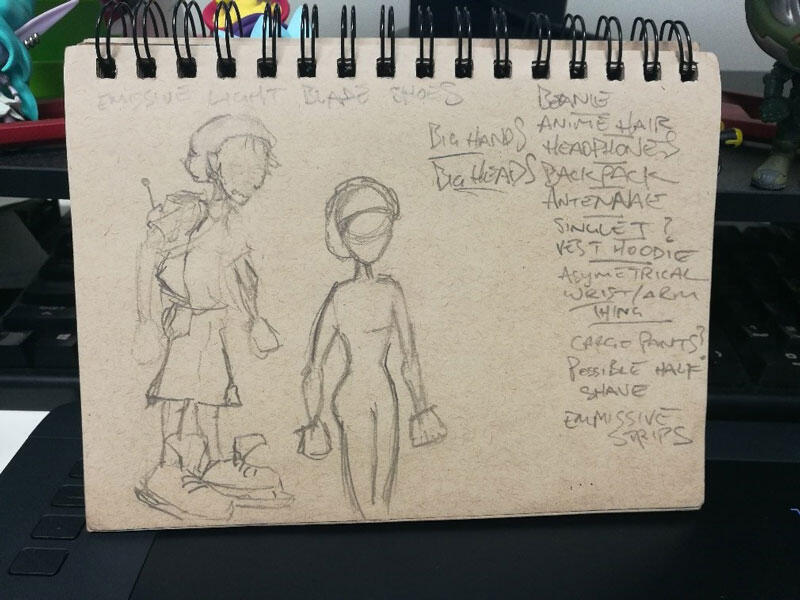 EMISSIVE LIGHT BLADE SHOES
BIG HANDS
BIG HEADS
BEANIE
ANIME HAIR
HEADPHONES
BACKPACK
ANTENNAE
SINGLET?
VEST HOODIE
ASYMETRICAL
WRIST/ARM
THING
CARGE PANTS?
POSSIBLE HALF
SHAVE
EMMISSIVE
STRIPS